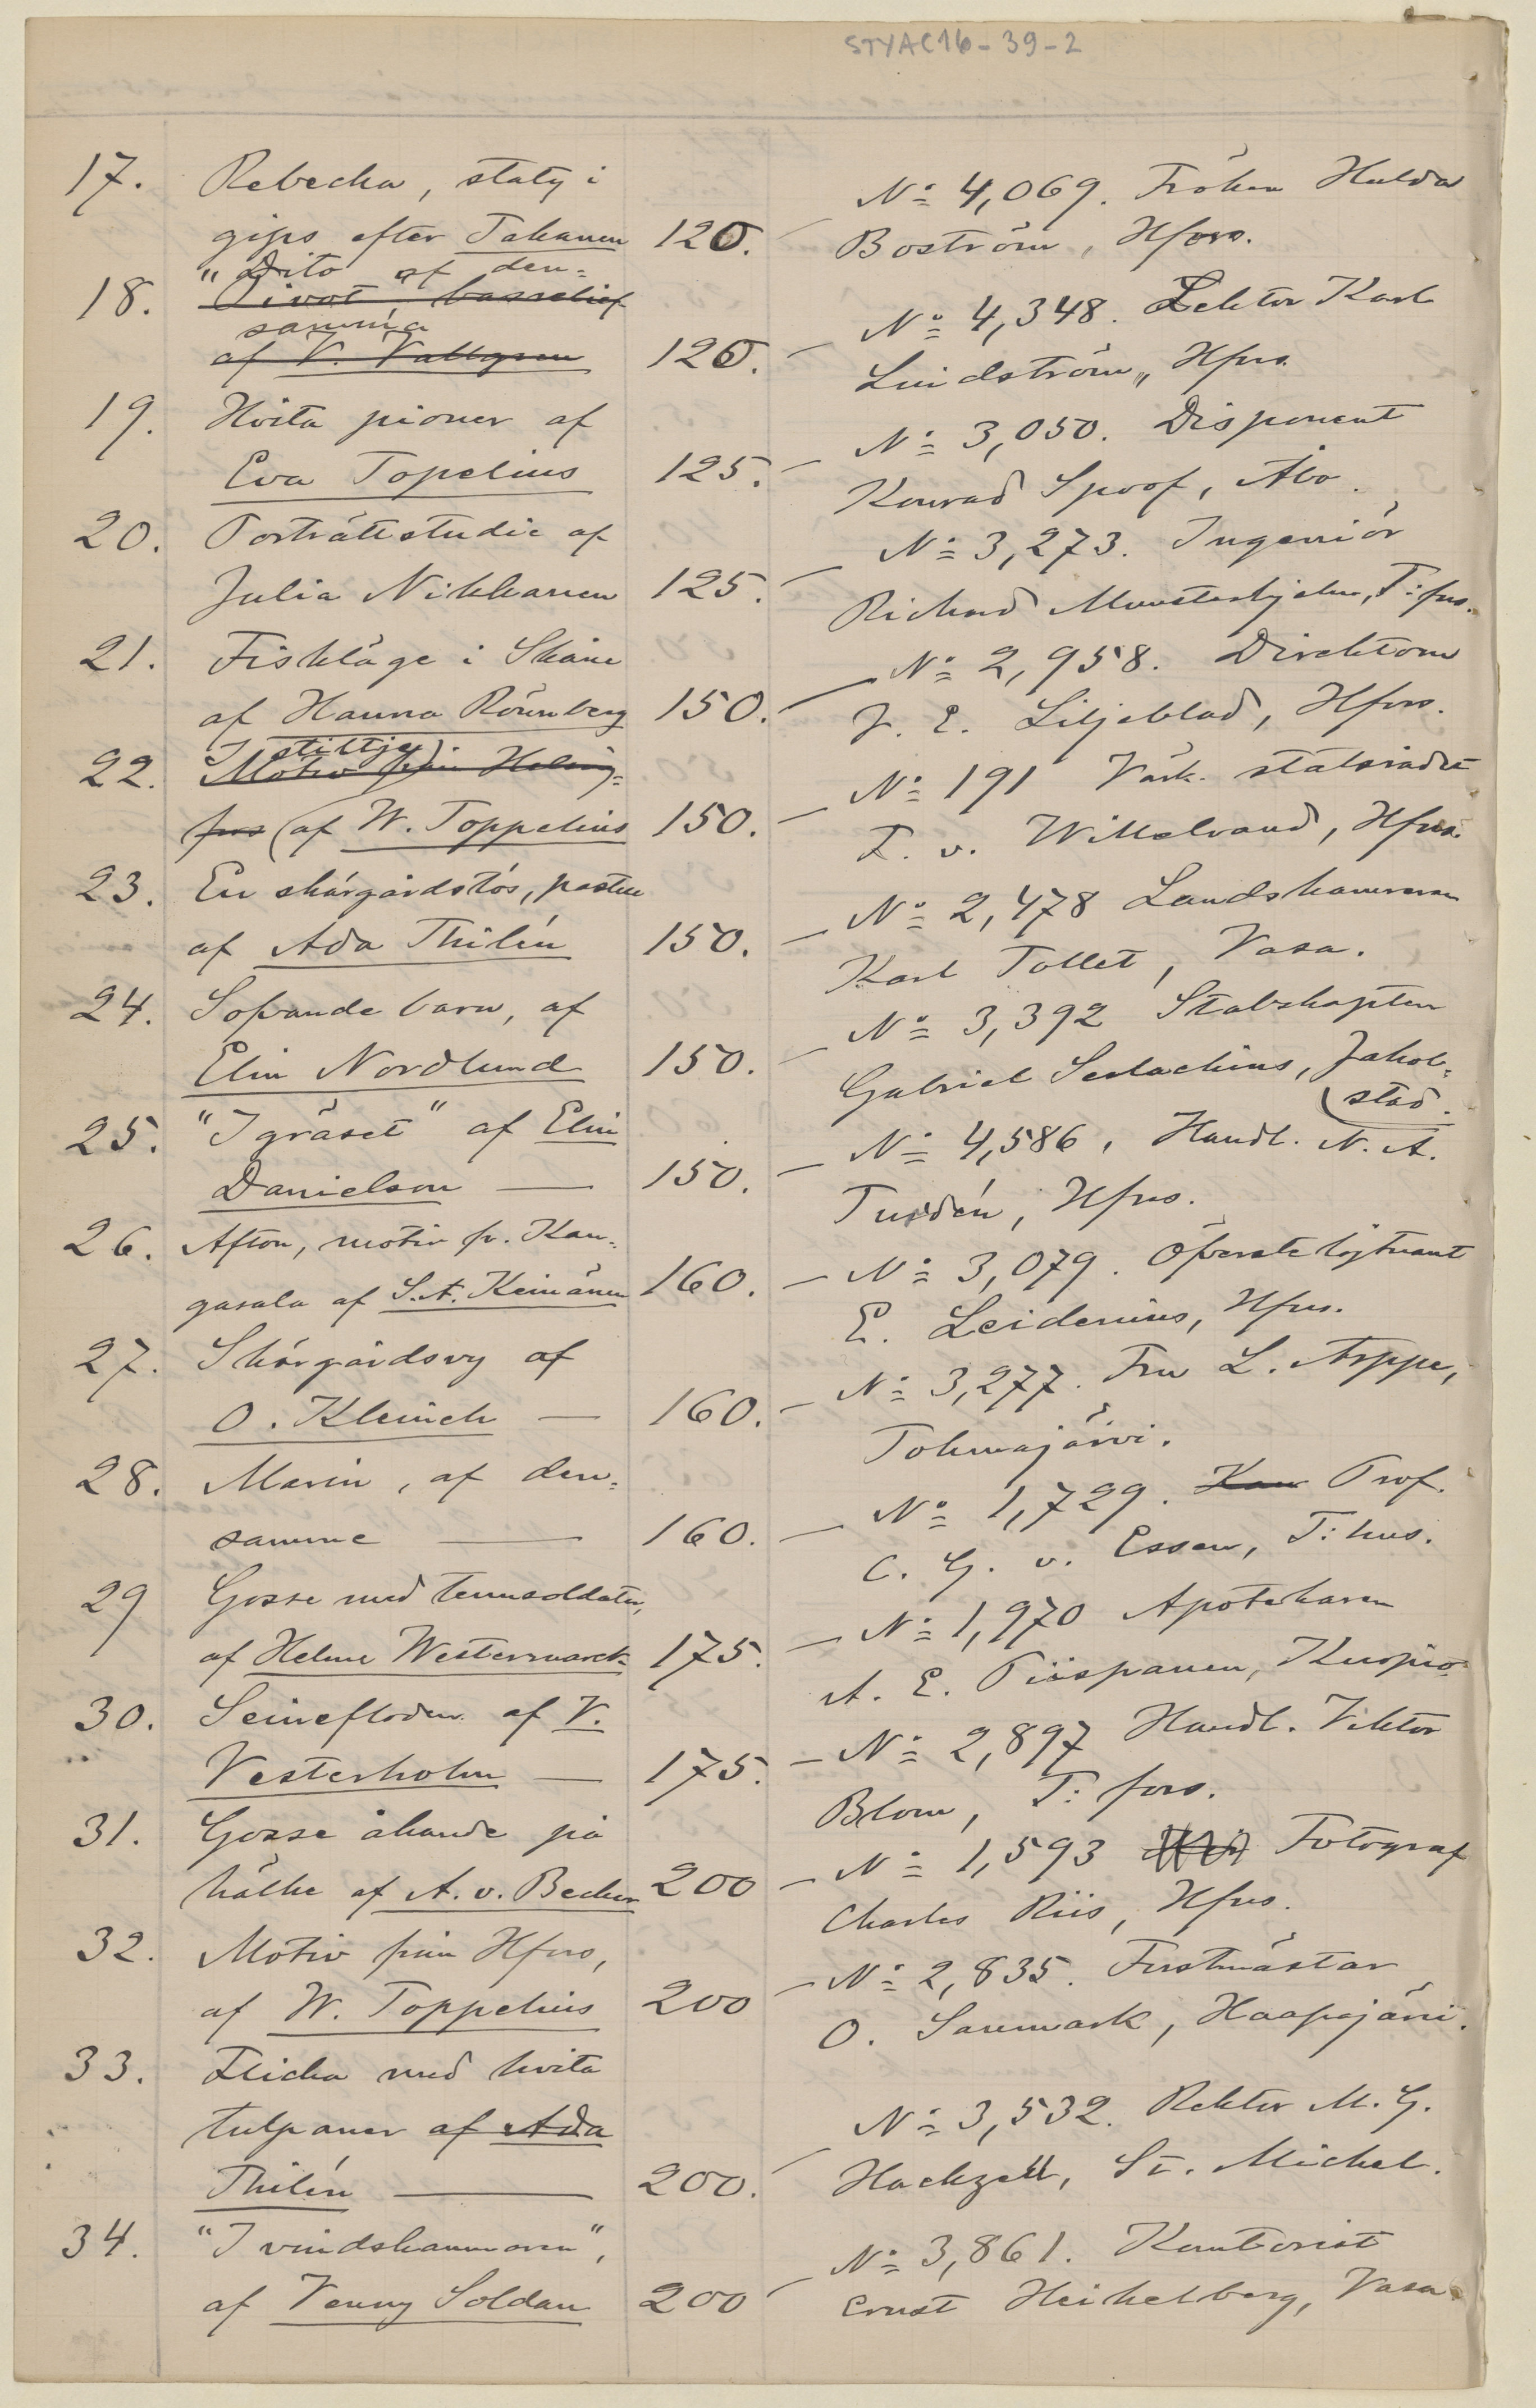 STYAC16-39-2
17. Rebecka, staty i
gips efter Takanen 120.
N:o 4,069. Fröken Hulda
Boström, Hfors.
18. "Dito af den-
Sivat, basrelief
samma
af V. Vallgren 120.
N:o 4,348. Lektor Karl
Lindström, Hfrs.
19. Hvita pioner af
Eva Topelius 125.
N:o 3,050. Disponent
Konrad Spoof, Åbo.
20. Porträttstudie af
Julia Nikkanen 125.
N:o 3,273. Ingeniör
Richard Munsterhjelm, T:fors.
21. Fiskläge i Skåne
af Hanna Rönnberg 150.
N:o 2,958. Direktorn
J. E. Liljeblad, Hfors.
22. stiltje
Motiv från Helsing-
fors (af W. Toppelius 150.
N:o 191 Värk. statsrådet
F. v. Willebrand, Hfrs.
23. En skärgårdstös, pastell
af Ada Thilén 150.
N:o 2,478 Landskamreraren
Karl Tollet, Vasa.
24. Sofvande barn, af
Elin Nordlund 150.
N:o 3,392 Stabskapten
Gabriel Serlachius, Jakob-
(stad.
25. "I gräset" af Elin
Danielson — 150.
N:o 4,586, Handl. N. A.
Turdén, Hfrs.
26. Afton, motiv fr. Kan-
gasala af S. A. Keinänen 160.
N:o 3,079. Öfverstelöjtnant
E. Leidenius, Hfrs.
27. Skärgårdsvy af
O. Kleineh — 160.
N:o 3,277. Fru L. Arppe,
Tohmajärvi.
28. Marin, af den-
samme — 160.
N:o 1,729. Prof.
C. G. v. Essen, T:hus.
29 Gosse med tennsoldater,
af Helene Westermarck 175.
N:o 1,970 Apotekaren
A. E. Piispanen, Kuopio.
30. Seinefloden af V.
Vesterholm — 175.
N:o 2,897 Handl. Viktor
Blom, T:fors.
31. Gosse åkande på
kälke af A. v. Becker 200
N:o 1,593 Fotograf
Charles Riis, Hfrs.
32. Motiv från Hfors,
af W. Toppelius 200
N:o 2,835. Forstmästar
O. Sanmark, Haapajärvi.
33. Flicka med hvita
tulpaner af Ada
Thilén — 200.
N:o 3,532. Rektor M. G.
Hackzell, St. Michel.
34. "I vindskammaren",
af Venny Soldan 200
N:o 3,861. Kontorist
Ernst Heikelberg, Vasa